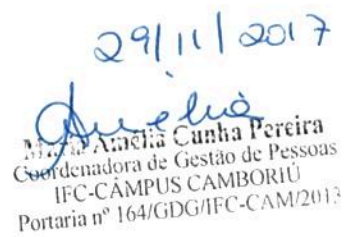 29/11/2017
Amélia
Maria Amélia Cunha Pereira
Coordenadora de Gestão de Pessoas
IFC-CÂMPUS CAMBORIÚ
Portaria nº 164/GDG/IFC-CAM/2013